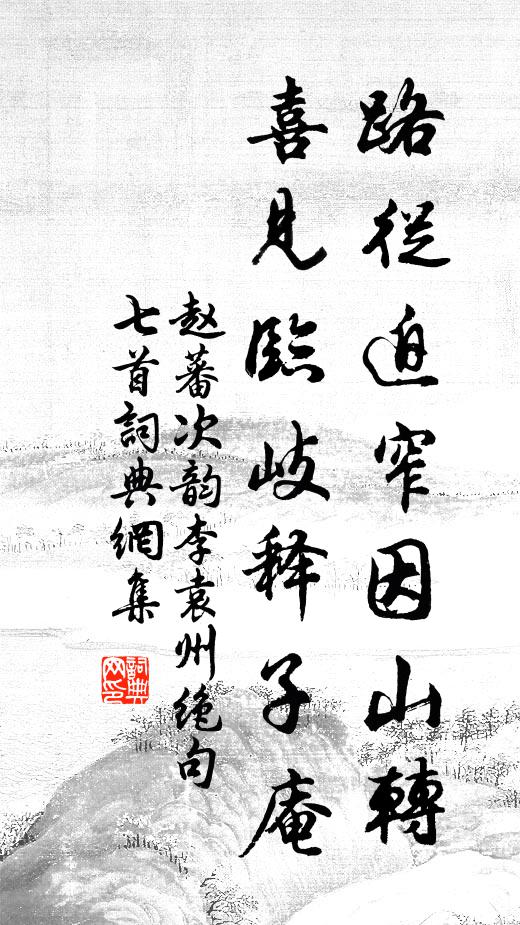 路從迫窄因山轉
喜見臨岐釋子庵
赵蕃次韵李袁州绝句
七首詞典網集
詞典网印